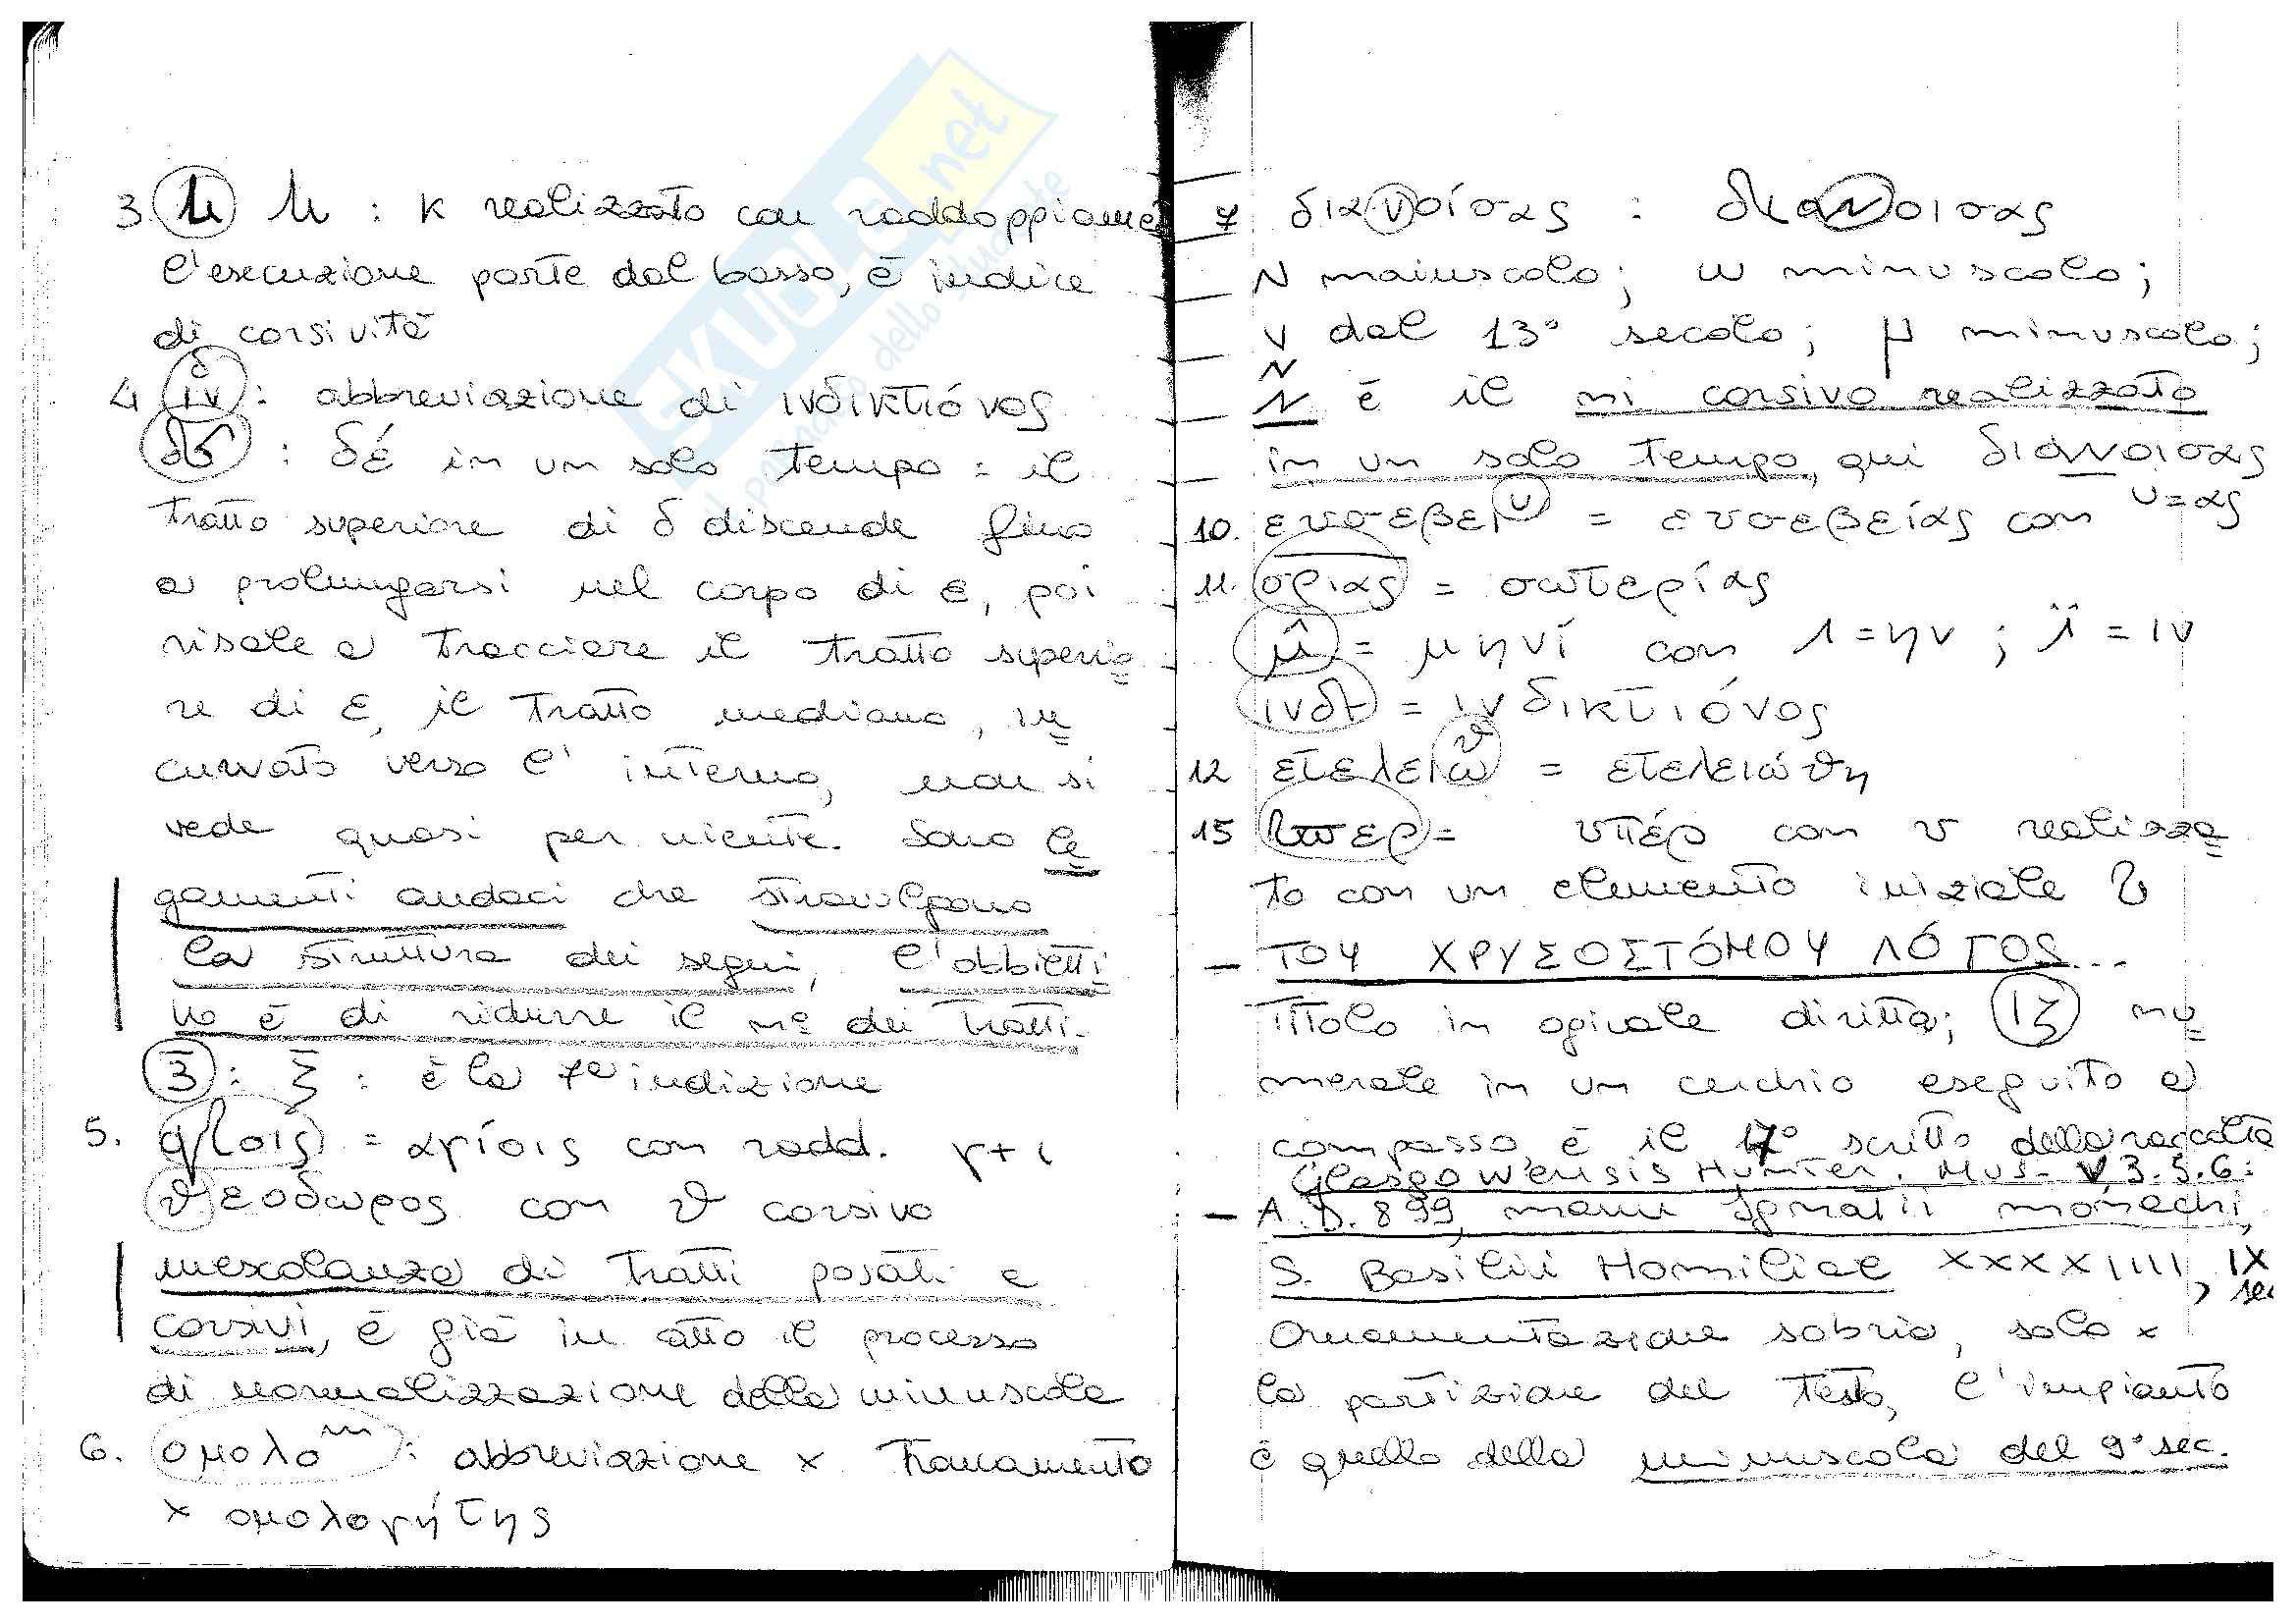 3. : κ realizzato con raddoppiame
l'esecuzione parte dal basso, è indice
di corsività
4 ιν^δ : abbreviazione di ινδικτιόνος
: δέ in un solo tempo = il
tratto superiore di δ discende fino
a prolungarsi nel corpo di ε, poi
risale a tracciare il tratto superio
re di ε, il tratto mediano, in
curvato verso l'interno, non si
vede quasi per niente. Sono le
gamenti audaci che stravolgono
la struttura dei segni, l'obbietti
vo è di ridurre il n° dei tratti.
: è la 7a indizione
5. = αγίοις con radd. γ + ι
ϑεοδωρος con ϑ corsivo
mescolanza di tratti posati e
corsivi, è già in atto il processo
di normalizzazione della minuscola
6. ομολο : abbreviazione x troncamento
x ομολογήτης
SKUOLA.net
il paradiso dello studente
7 διανοίσας : διανοισας
N maiuscolo; u minuscolo;
ν dal 13° secolo; μ minuscolo;
N
N è il ni corsivo realizzato
in un solo tempo, qui διανοισας
10. ευσεβει^υ = ευσεβείας con υ=ας
11. σριας = σωτερίας
= μηνί con = ην ; = ιν
ινδτ = ινδικτιόνος
12 ετελειω^ϑ = ετελειώϑη
15 υπερ = υπέρ con υ realizza
to con un elemento iniziale
- ΤΟΥ ΧΡΥΣΟΣΤΌΜΟΥ ΛΌΓΟΣ...
Titolo in ogivale diritta; ΙΖ nu
merale in un cerchio eseguito a
compasso, è il 17° scritto della raccolta
Glasgowensis Hunter. Mus. V 3.5.6:
- A.D. 899, manu Ignatii monachi,
S. Basilii Homiliae XXXXIIII, IX
sec
Ornamentazione sobria, solo x
la partizione del testo, l'impianto
è quello della minuscola del 9° sec.